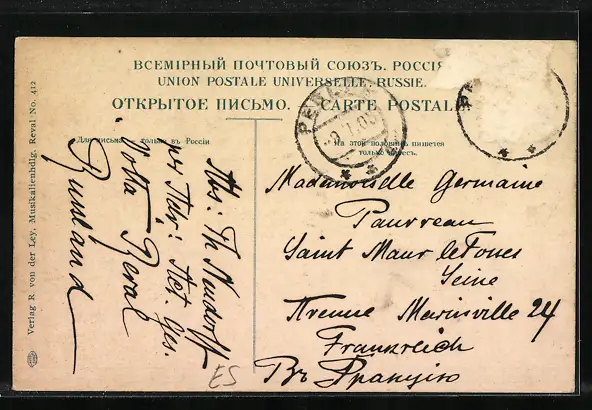 ВСЕМІРНЫЙ ПОЧТОВЫЙ СОЮЗЪ. РОССІЯ
UNION POSTALE UNIVERSELLE. RUSSIE.
ОТКРЫТОЕ ПИСЬМО. — CARTE POSTALE
Для письма только въ Россіи
На этой половинѣ пишется
только адресъ.
Verlag R. von der Ley, Musikalienhdlg. Reval No. 412
Abs: Th. Neudorff
per Adr: Act. Ges.
Volta Reval
Russland
Mademoiselle Germaine
Pauvreau
Saint Maur les Fosses
Seine
Avenue Marinville 24
Frankreich
Въ Францію
ES